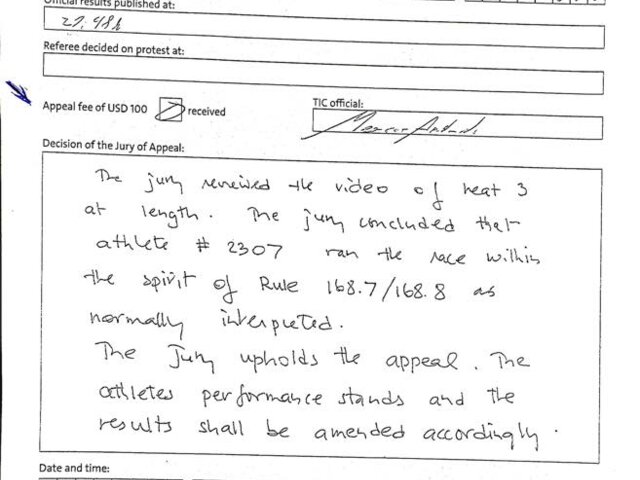 Official results published at:
Referee decided on protest at:
Appeal fee of USD 100 received
TIC official:
Decision of the Jury of Appeal:
The jury reviewed the video of heat 3
at length. The jury concluded that
athlete # 2307 ran the race within
the spirit of Rule 168.7/168.8 as
normally interpreted.
The Jury upholds the appeal. The
athletes performance stands and the
results shall be amended accordingly.
Date and time: